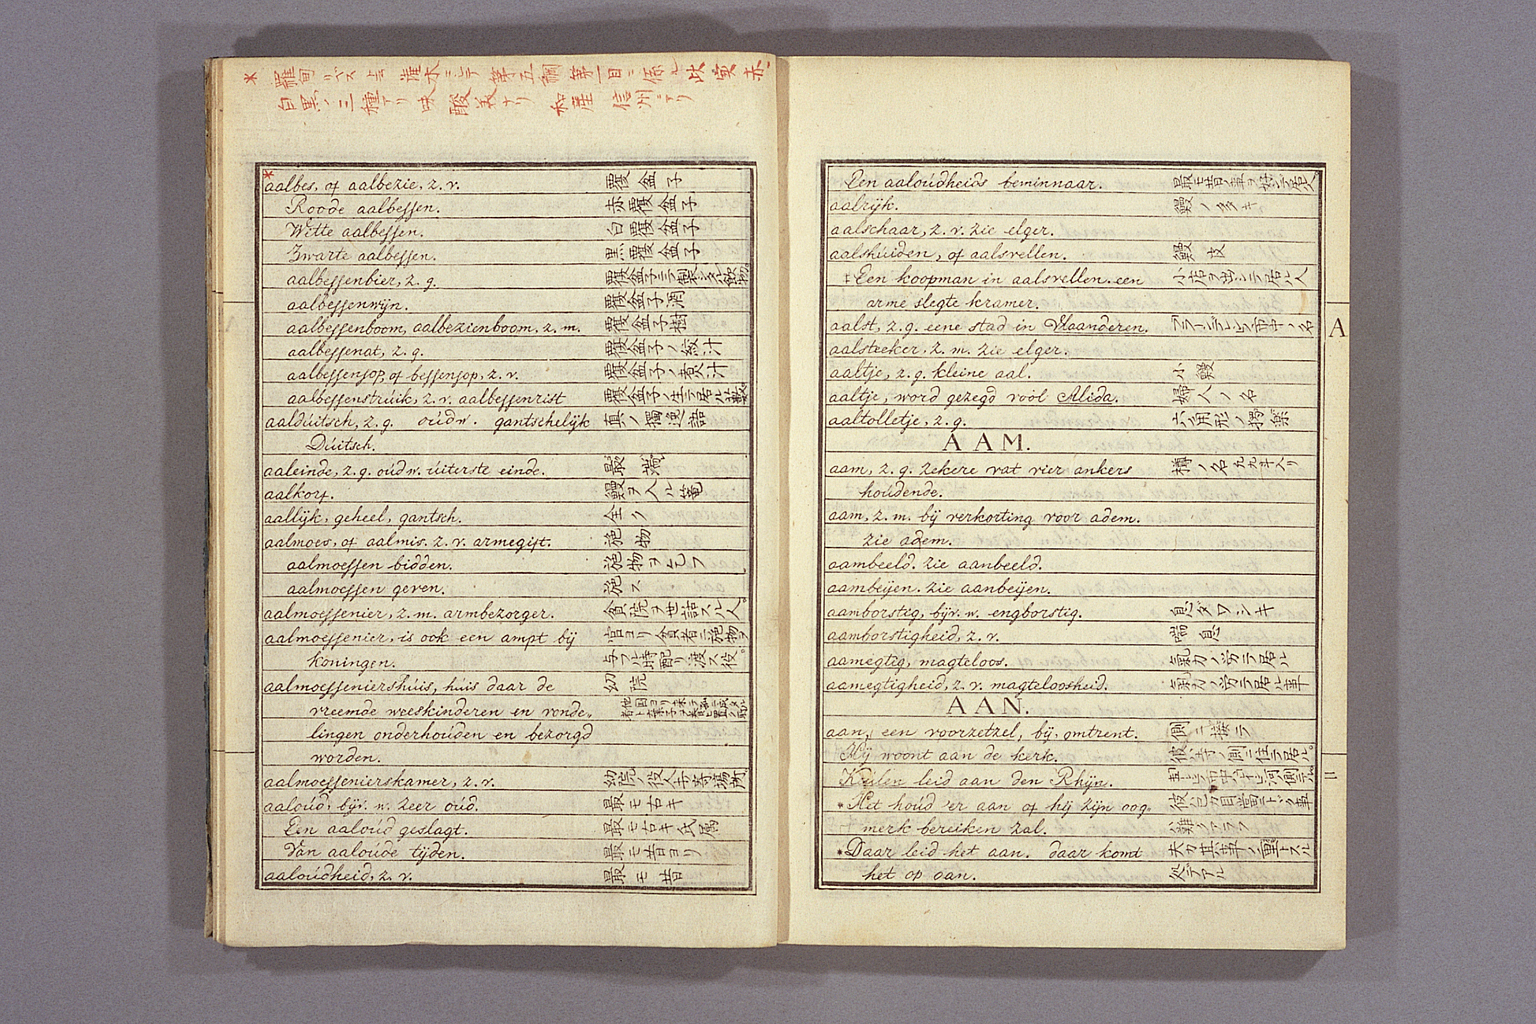 * 羅甸 リベス 云 第五綱第一目ニ係ル 此実赤
白黒ノ三種アリ味酸美ナリ 和産信州ニアリ
*aalbes, of aalbezie, z. v. 覆盆子
Roode aalbessen. 赤覆盆子
Witte aalbessen. 白覆盆子
Zwarte aalbessen. 黒覆盆子
aalbessenbier, z. g. 覆盆子ニテ製シタル飲物
aalbessenwijn. 覆盆子酒
aalbessenboom, aalbezienboom, z. m. 覆盆子樹
aalbessenat, z. g. 覆盆子ノ絞汁
aalbessensop, of bessensop, z. v. 覆盆子ノ煮汁
aalbessenstruik, z. v. aalbessenrist 覆盆子ノ生テ居ル藪
aalduitsch, z. g. oud w. gantschelijk 真ノ獨逸語
Duitsch.
aaleinde, z. g. oud w. uiterste einde. 最端
aalkorf. 鰻ヲ入ル篭
aallijk, geheel, gantsch. 全ク
aalmoes, of aalmis. z. v. armegift. 施物
aalmoessen bidden. 施物ヲ乞フ
aalmoessen geven. 施ス
aalmoessenier, z. m. armbezorger. 貧院ヲ世話スル人
aalmoessenier, is ook een ampt bij 官ヨリ貧者ニ施物ヲ
koningen. 与フル時配リ渡ス役
aalmoesseniershuis, huis daar de 幼院
vreemde weeskinderen en vonde,
lingen onderhouden en bezorgd
worden.
aalmoessenierskamer, z. v. 幼院ノ役人寄場所
aaloud, bijv. w. zeer oud. 最モ古キ
Een aaloud geslagt. 最モ古キ氏属
Van aaloude tijden. 最モ昔ヨリ
aaloudheid, z. v. 最モ昔
Een aaloudheids beminnaar. 最モ昔ノ事ヲ好テ居人
aalrijk. 鰻ノ多キ
aalschaar, z. v. zie elger.
aalshuiden, of aalsvellen. 鰻皮
Een koopman in aalsvellen. een 小店ヲ出シテ居ル人
arme slegte kramer.
aalst, z. g. eene stad in Vlaanderen. フラーンデレン市中ノ名
aalsteeker, z. m. zie elger.
aaltje, z. g. kleine aal. 小鰻
aaltje, word gezegd voor Alida. 婦人ノ名
aaltolletje, z. g. 六角形ノ独楽
AAM.
aam, z. g. zekere vat vier ankers 樽ノ名
houdende.
aam, z. m. bij verkorting voor adem.
zie adem.
aambeeld. zie aanbeeld.
aambeijen. zie aanbeijen.
aamborstig, bijv. w. engborstig. 息ダワシキ
aamborstigheid, z. v. 喘息
aamegtig, magteloos. 氣力ノ労テ居ル
aamegtigheid, z. v. magteloosheid. 氣力ノ労テ居ル事
AAN.
aan, een voorzetzel, bij. omtrent. 側ニ 接テ
Hij woont aan de kerk. 彼ハ寺ノ側ニ住テ居ル
Keulen leid aan den Rhijn.
*Het houd 'er aan of hij zijn oog,
merk bereiken zal.
*Daar leid het aan. daar komt
het op aan. 処デアル
A
二